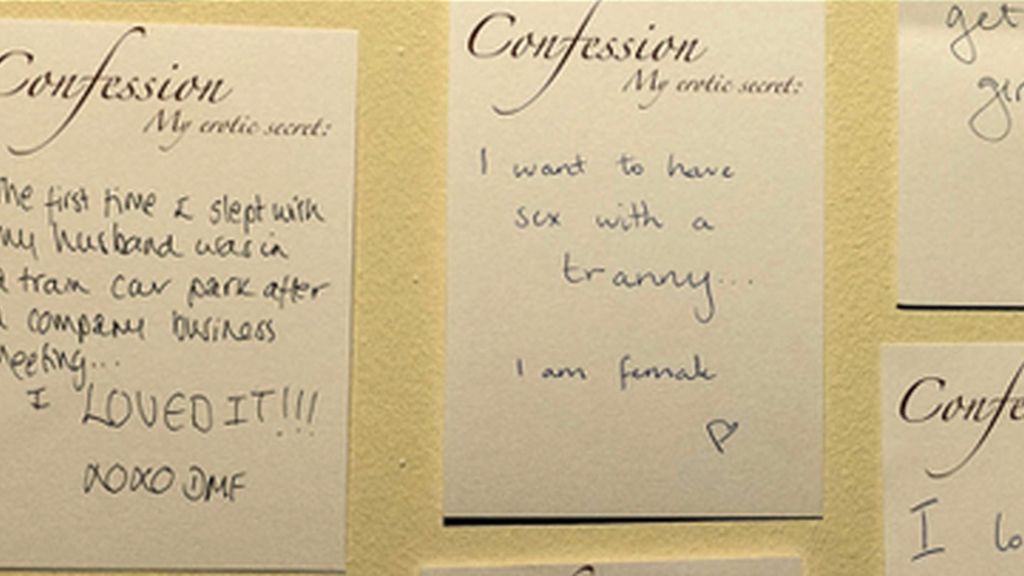 Confession
My erotic secret:
The first time I slept with
my husband was in
a train car park after
a company business
meeting...
I LOVED IT!!!
XOXO DMF
Confession
My erotic secret:
I want to have
sex with a
tranny...
I am female
get
Confe
I lo